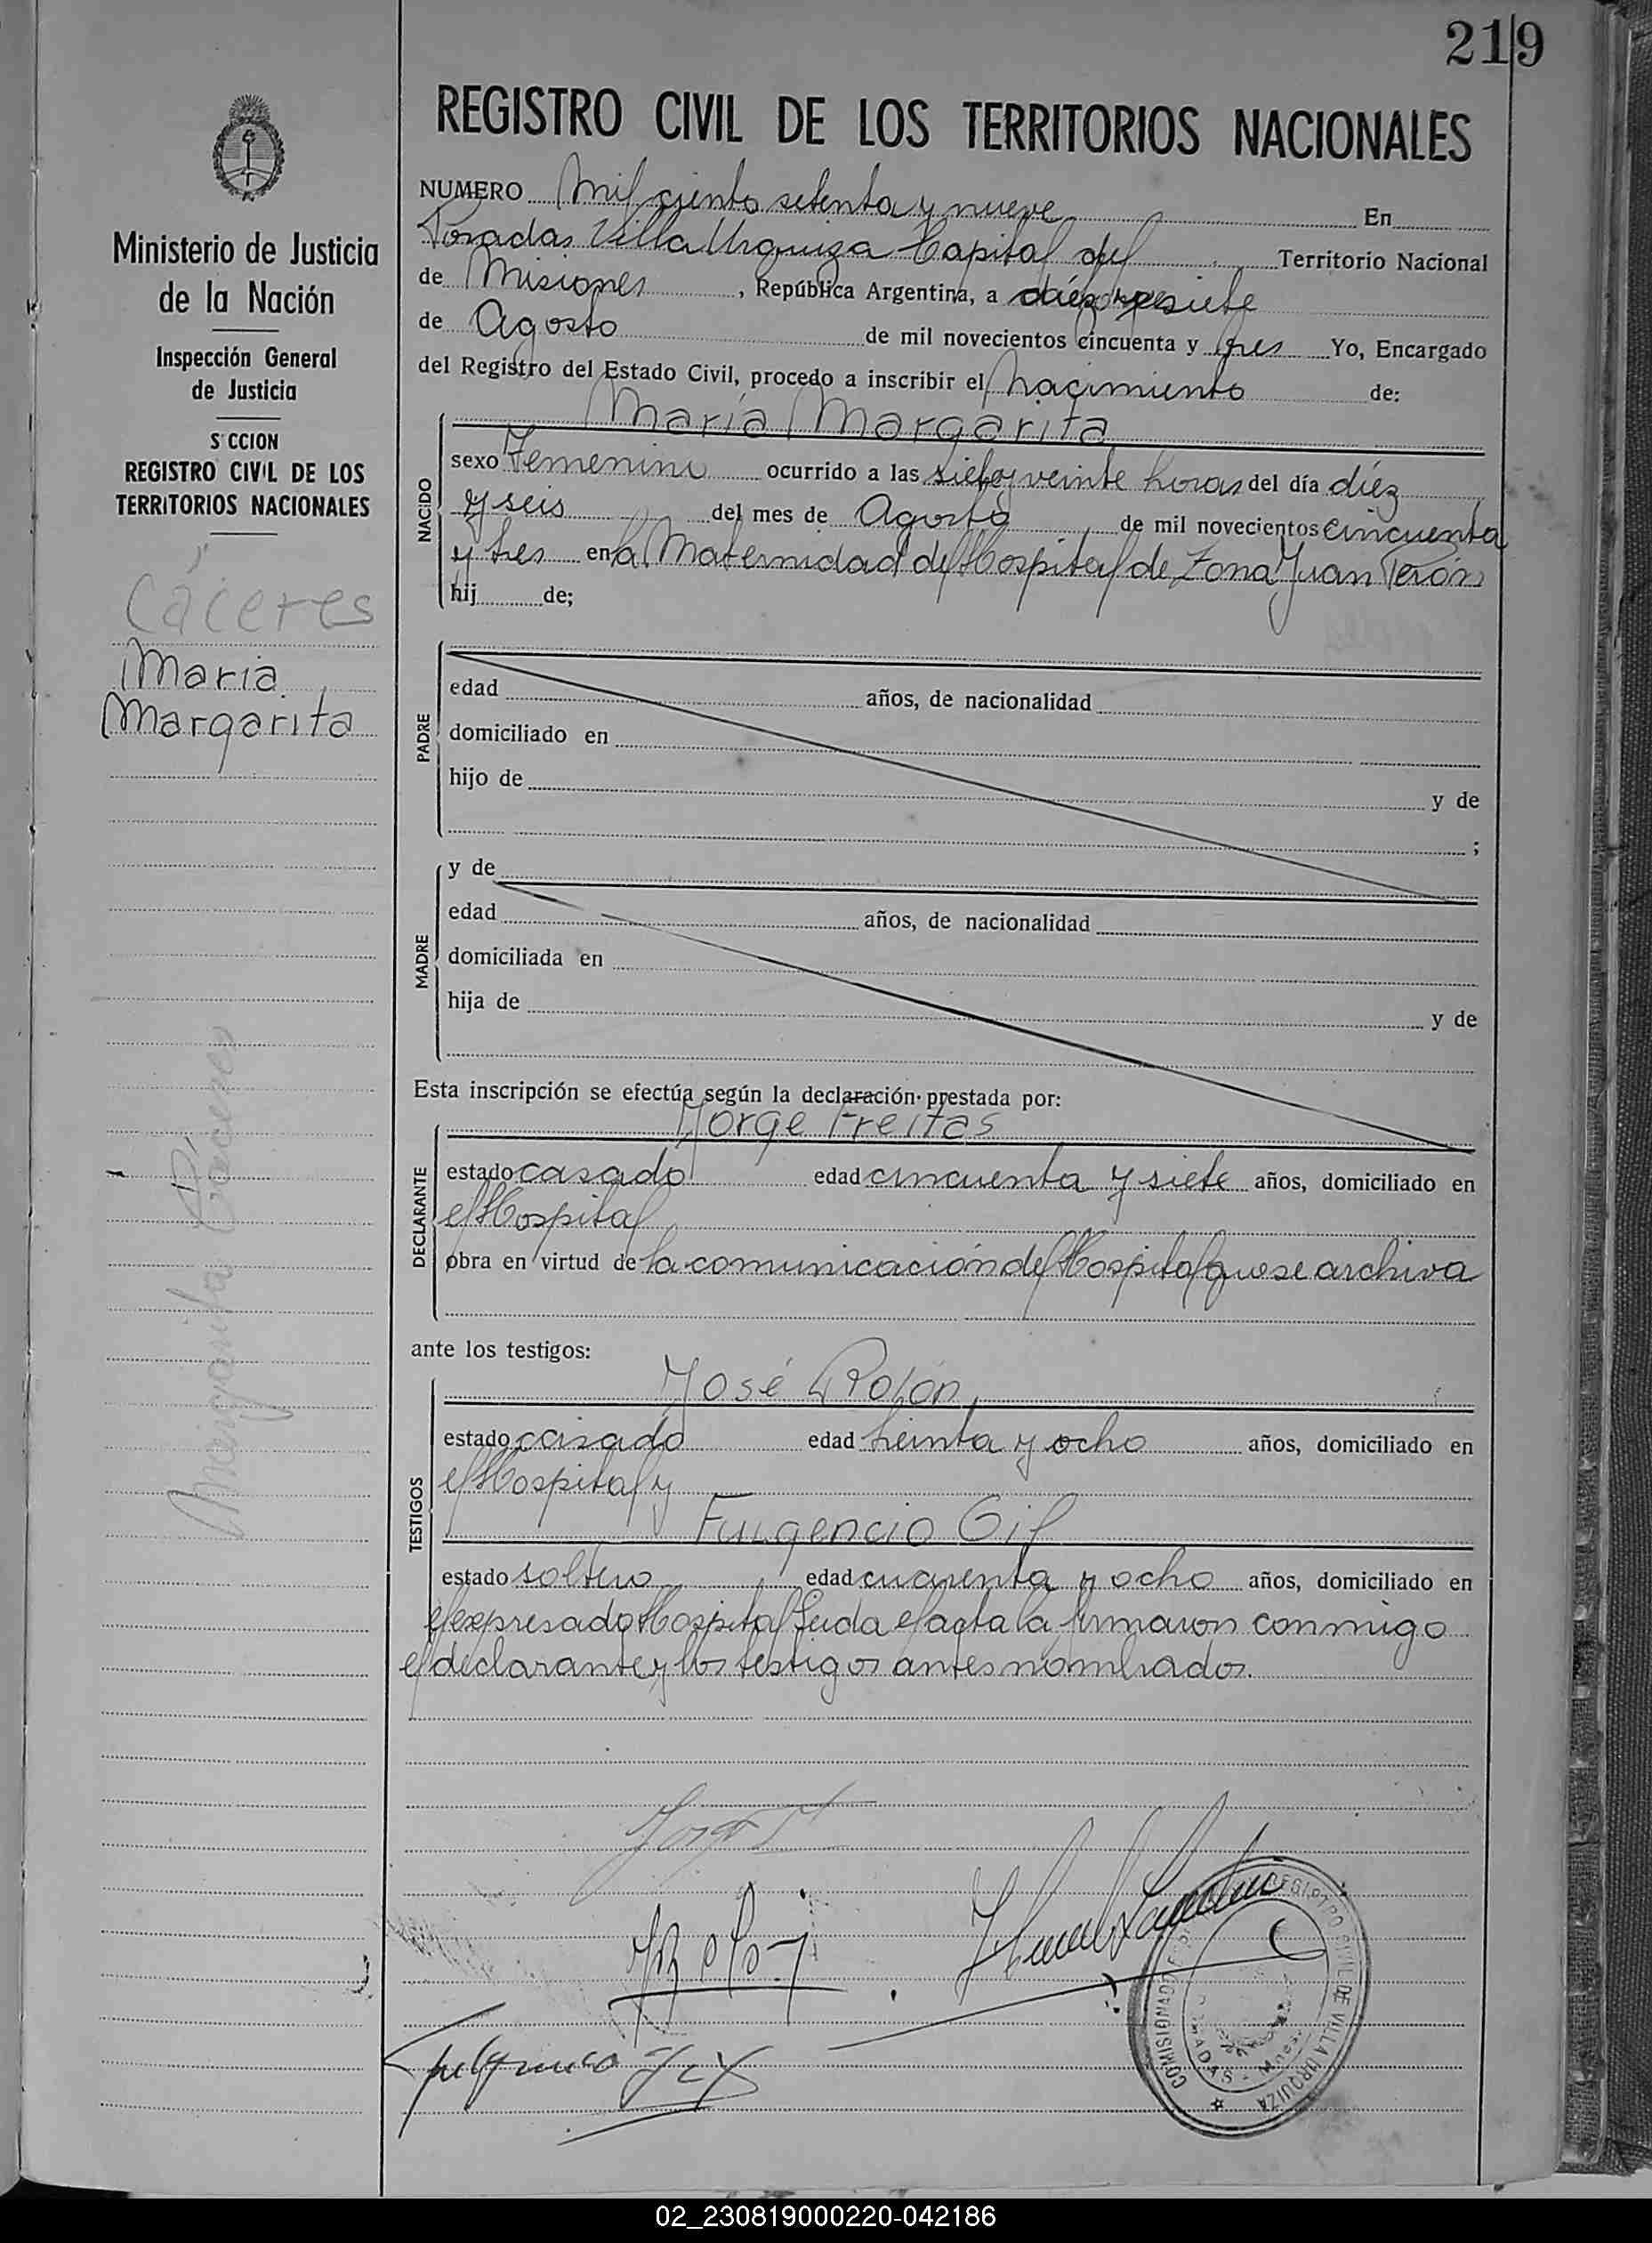 219
REGISTRO CIVIL DE LOS TERRITORIOS NACIONALES
Ministerio de Justicia
de la Nación
Inspección General
de Justicia
S CCION
REGISTRO CIVIL DE LOS
TERRITORIOS NACIONALES
Cáceres
María
Margarita
Margarita Cáceres
NUMERO Mil ciento setenta y nueve En
Posadas Villa Urquiza Capital del Territorio Nacional
de Misiones, República Argentina, a diez y siete
de Agosto de mil novecientos cincuenta y tres Yo, Encargado
del Registro del Estado Civil, procedo a inscribir el nacimiento de:
María Margarita
NACIDO
sexo Femenino ocurrido a las siete y veinte horas del día diéz
y seis del mes de Agosto de mil novecientos cincuenta
y tres en la Maternidad del Hospital de Zona Juan Perón
hij de;
PADRE
edad años, de nacionalidad
domiciliado en
hijo de y de
;
MADRE
y de
edad años, de nacionalidad
domiciliada en
hija de y de
Esta inscripción se efectúa según la declaración prestada por:
Jorge Freitas
DECLARANTE
estado casado edad cincuenta y siete años, domiciliado en
el Hospital
obra en virtud de la comunicación del Hospital que se archiva
ante los testigos:
José Rolón
TESTIGOS
estado casado edad treinta y ocho años, domiciliado en
el Hospital y
Fulgencio Gil
estado soltero edad cuarenta y ocho años, domiciliado en
el expresado Hospital Leida el acta la firmaron conmigo
el declarante y los testigos antes nombrados.
REGISTRO CIVIL DE VILLA URQUIZA
COMISIONADO
02_230819000220-042186